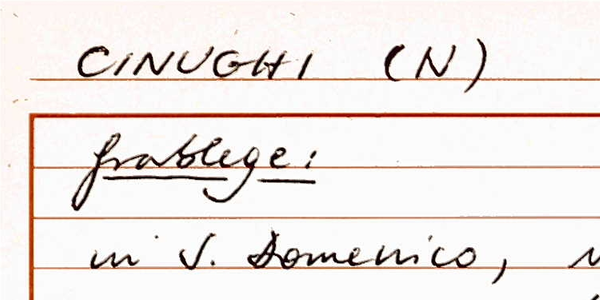 CINUGHI (N)
Grablege:
in S. Domenico,